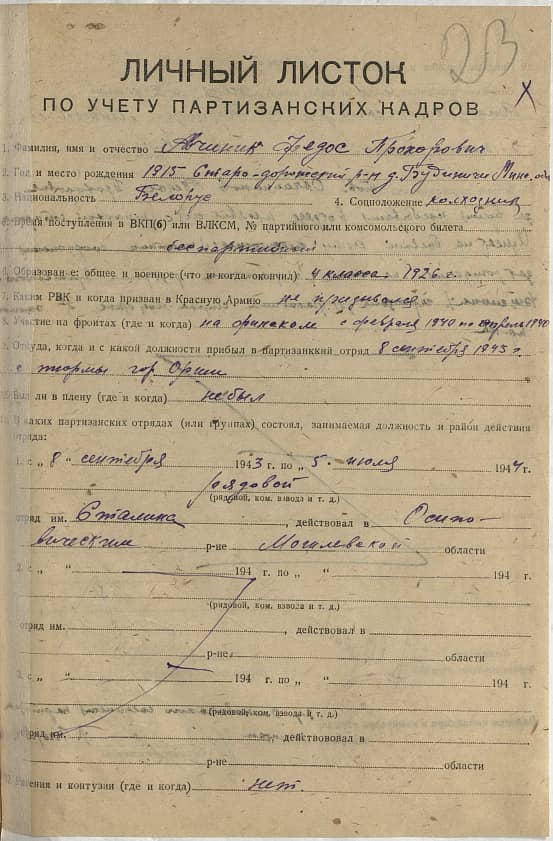 23
ЛИЧНЫЙ ЛИСТОК
ПО УЧЕТУ ПАРТИЗАНСКИХ КАДРОВ
1. Фамилия, имя и отчество Федос Прохорович
2. Год и место рождения 1915 Старо-дорожский р-н д. Будиничи Минс. обл
3. Национальность Белорус 4. Соцположение колхозник
5. Время поступления в ВКП(б) или ВЛКСМ, № партийного или комсомольского билета
беспартийный
6. Образован е: общее и военное (что и когда окончил) 4 класса 1926 г.
7. Каким РВК и когда призван в Красную Армию не призывался
8. Участие на фронтах (где и когда) на финском с февраля 1940 по апрель 1940
9. Откуда, когда и с какой должности прибыл в партизанкий отряд 8 сентября 1943 г.
с тюрмы гор Орши
10. Был ли в плену (где и когда) не был
В каких партизанских отрядах (или группах) состоял, занимаемая должность и район действия
отряда:
1. с „ 8 “ сентября 1943 г. по „ 5. “ июля 1944 г.
рядовой
(рядовой, ком. взвода и т. д.)
отряд им. Сталина, действовал в Осипо-
вическим р-не Могилевской области
2. с „ “ 194 г. по „ “ 194 г.
(рядовой, ком. взвода и т. д.)
отряд им. , действовал в
р-не области
3. с „ “ 194 г. по „ “ 194 г.
(рядовой, ком. взвода и т. д.)
отряд им. действовал в
р-не области
12. Ранения и контузии (где и когда) нет.